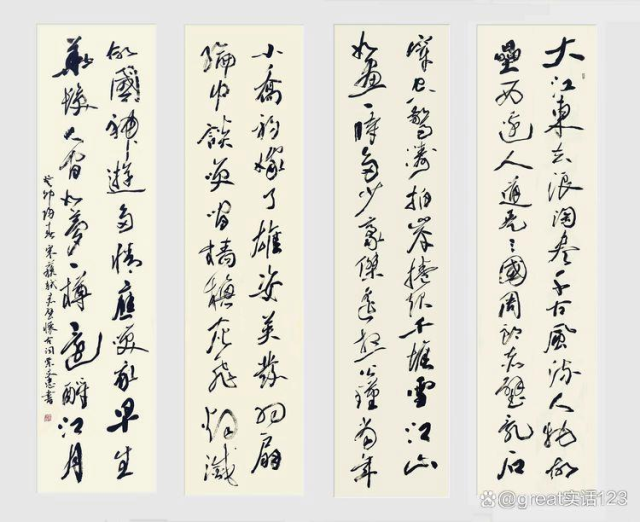 大江東去浪淘盡千古風流人物故
壘西邊人道是三國周郎赤壁亂石
穿空驚濤拍岸捲起千堆雪江山
如畫一時多少豪傑遙想公瑾當年
小喬初嫁了雄姿英發羽扇
綸巾談笑間檣櫓灰飛煙滅
故國神遊多情應笑我早生
華髮人間如夢一樽還酹江月
癸卯春宋蘇軾赤壁懷古詞書
@great实话123